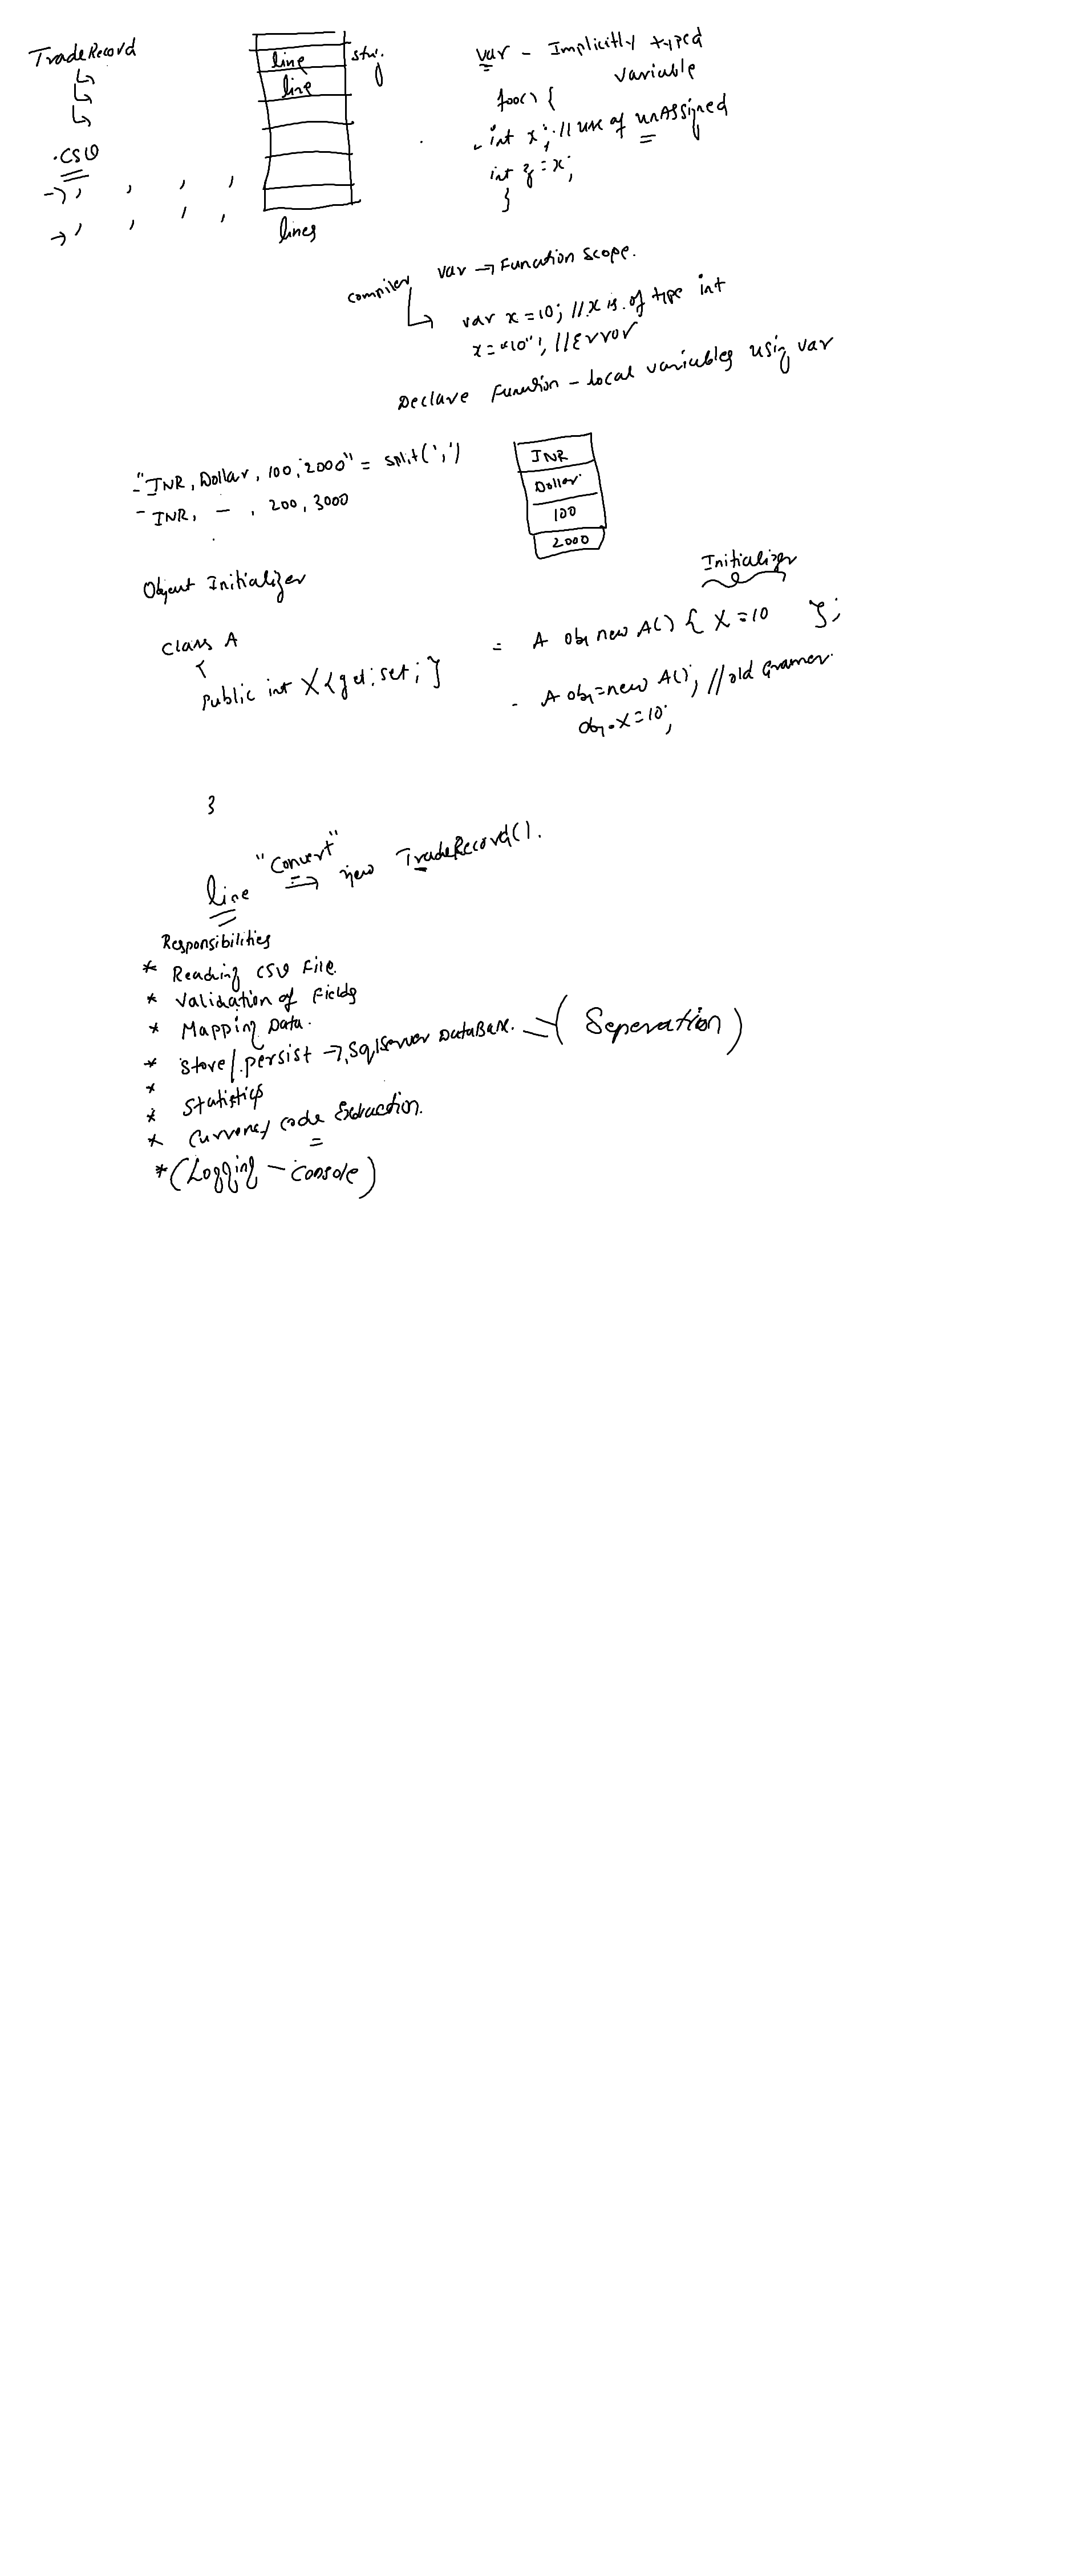 TradeRecord
.CSV
→, , , ,
→, , , ,
line
line
lines
var - Implicitly typed
variable
foo() {
int x; // use of unAssigned
int y = x;
}
compiler
var → Function scope.
var x = 10; // x is of type int
x = "10"; // Error
Declare Function - local variables using var
- "INR, Dollar, 100, 2000" = split(',')
- INR, - , 200, 3000
INR
Dollar
100
2000
Object Initializer
Initializer
class A
{
Public int X {get; set; }
}
= A obj new A() { X = 10 };
- A obj = new A(); // old Gramer.
obj.X = 10;
line "Convert" ⇒ new TradeRecord().
Responsibilities
* Reading CSV File.
* Validation of Fields
* Mapping Data.
* Store/persist → SqlServer DataBase. (Seperation)
*
* Statistics
* Currency code Extraction.
* (Logging - console)